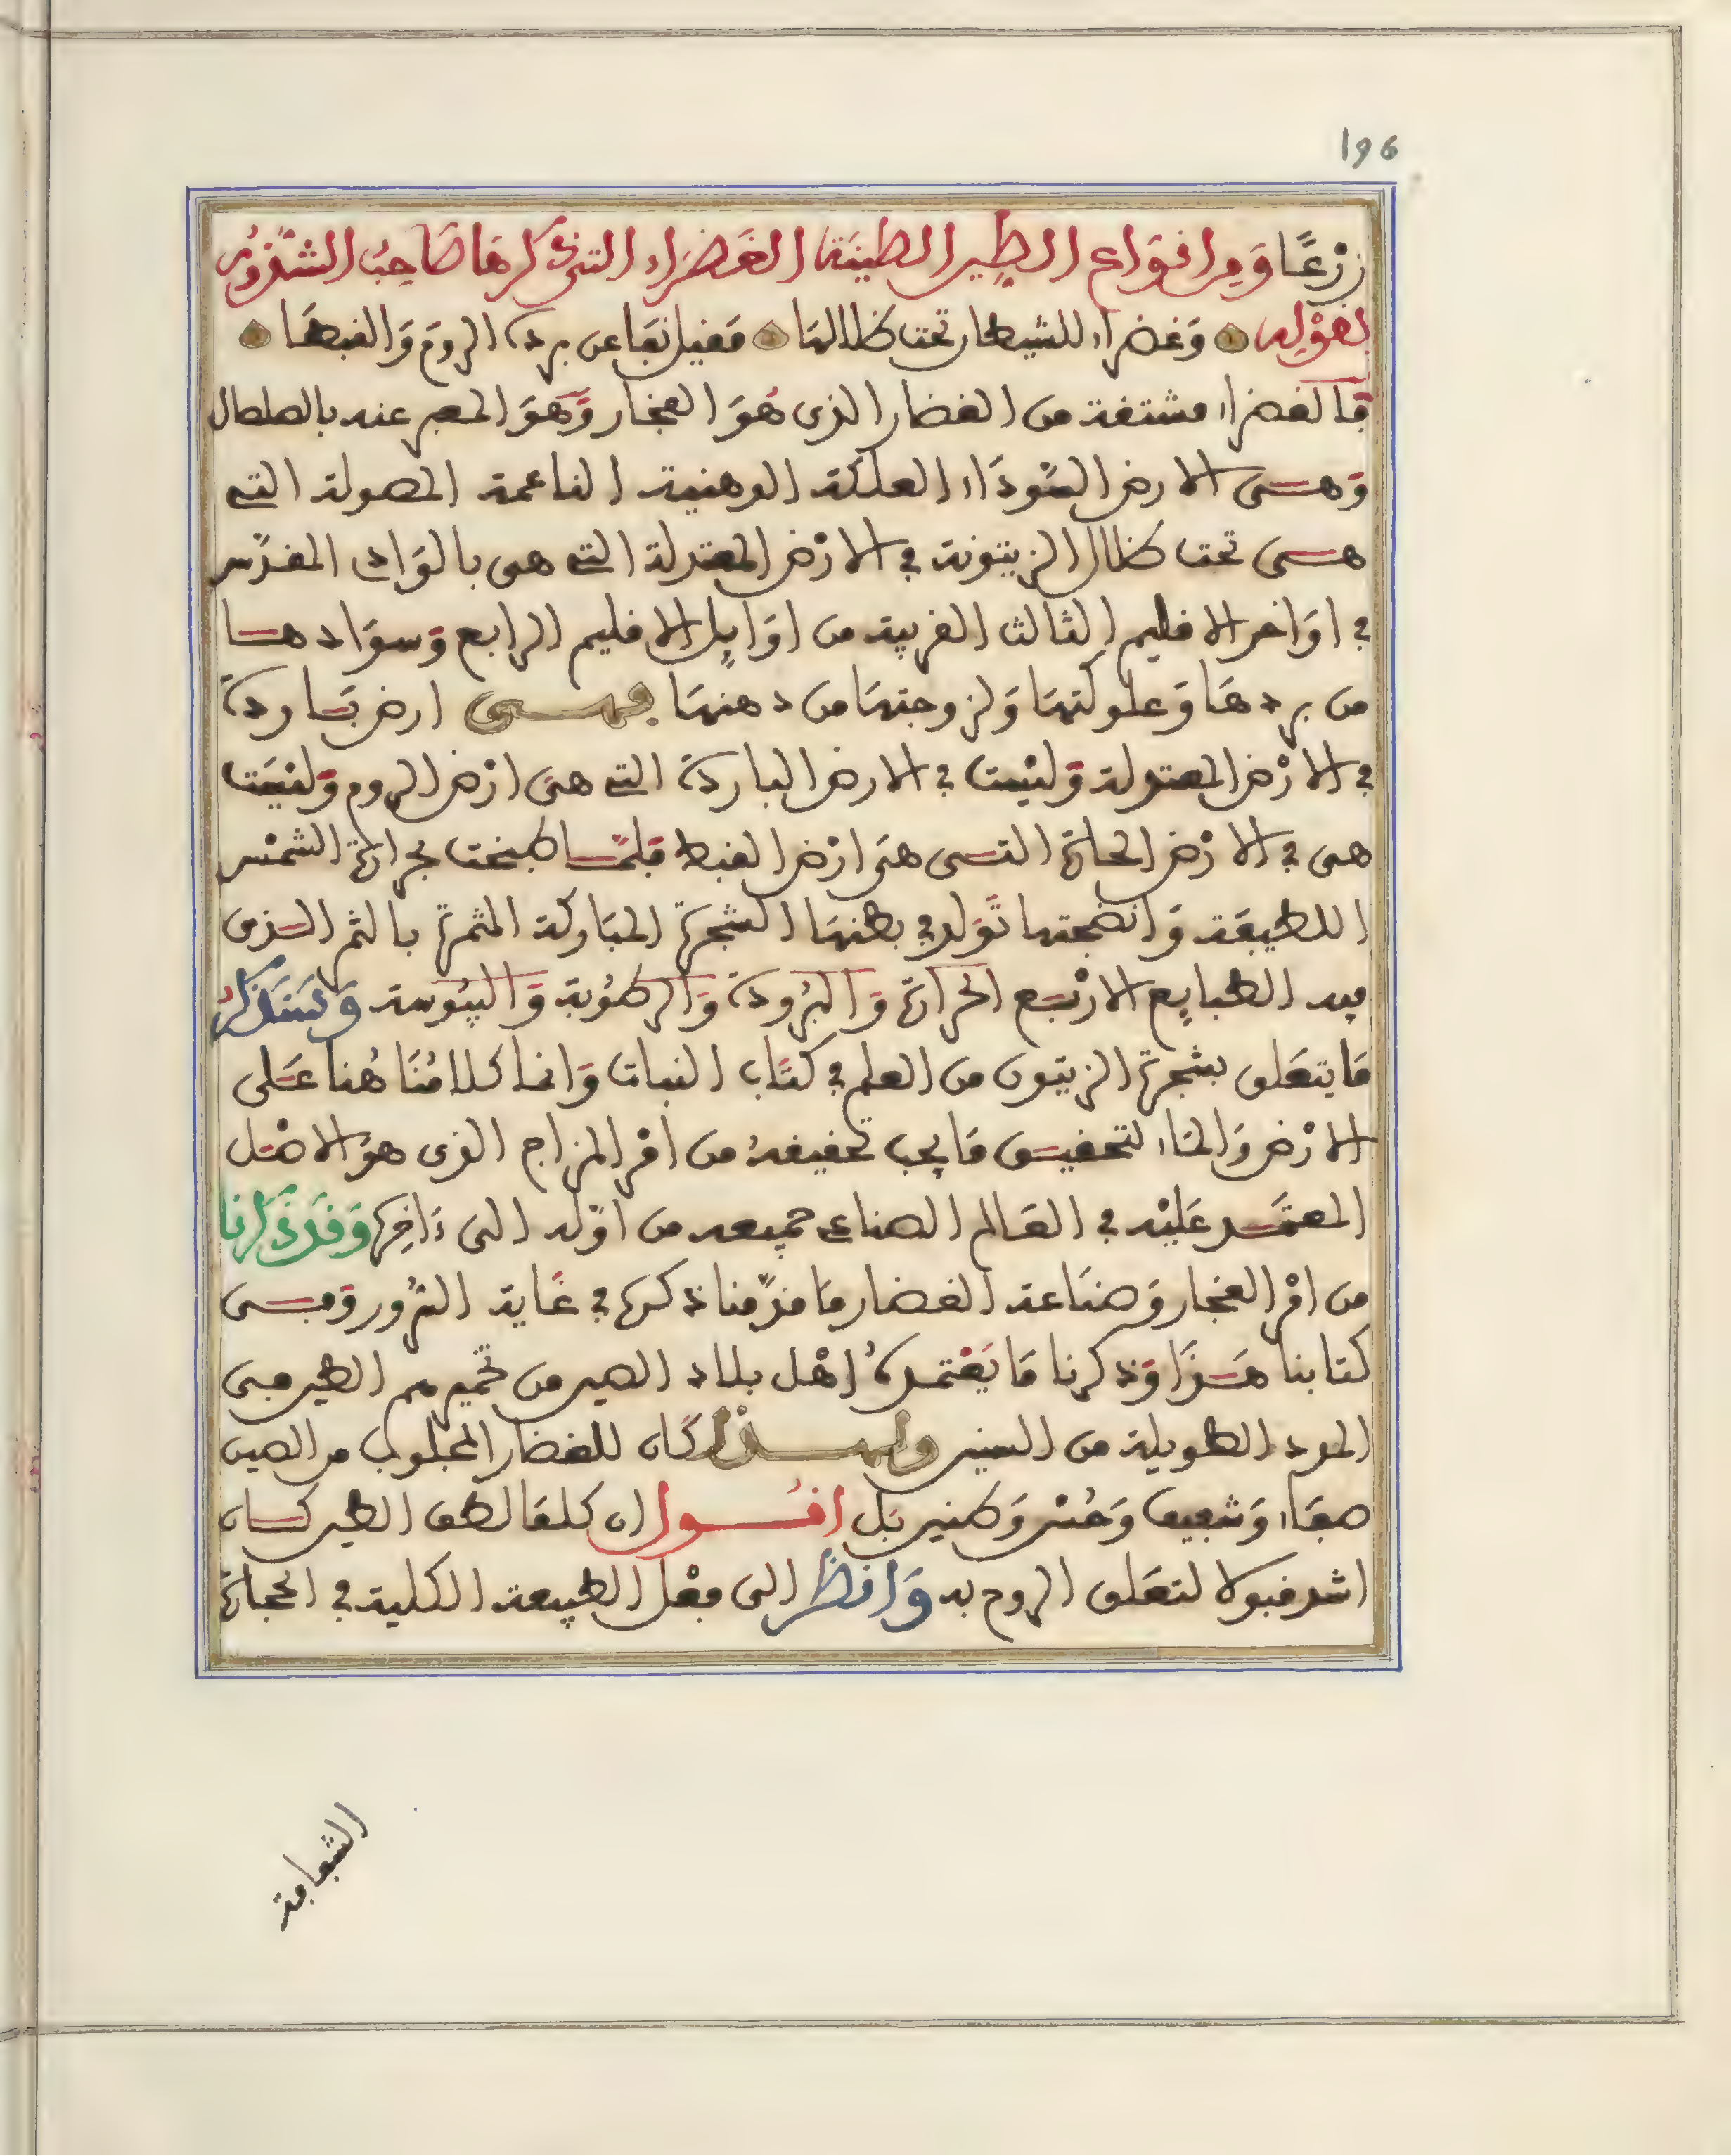 196
زرْعًا وَمِن انوَاع الطِين الطينَة الغَضرَاء التى ذكرهَا صَاحِبُ الشذُور
بقوْلِه وَغضراء للشيطان تحت ظلالها مقيل نفا عن بردة الروم وَالقبطَا
فالغضراء مشتقة من الغضار الذى هُوَ الفخار وَهوَ المعبر عنه بالصلصال
وَهــى الارض السَّودَاء العلكة الدهنية الناعمة المصولة التى
هــى تحت ظلال الزيتونة فى الارْض المعتدلة التى هى بالوَادى المقدّس
فى اوَاخر الاقليم الثالث القريبة من اوَايِل الاقليم الرابع وَسوَادهــا
من بردهَا وَعلوكتهَا وَلزوجتهَا من دهنهَا فهــى ارض بَــاردة
فى الارْض المعتدلة وَليْست فى الارض الباردة التى هىَ ارْض الروم وَليْسَت
هى فى الارْض الحارة التــى هىَ ارْض القبط فلمَّــا طبخت بحرارة الشمْس
اللطيفَة وَانضجتها تَوَلد فى بطنهَا الشجرة المبَاركة المثمرة بالثمر الــذى
فيه الطبايِع الارْبَــع الحرارة وَالبرُودة وَالرطُوبة وَاليبُوسة وَسَنذكرُ
مَا يتعَلق بشجرة الزيتون من العلم فى كتَاب النبات وَانما كلامُنَا هُنا عَــلى
الارْض وَالمَاء لتحقيــق مَا يجب تحقيقهُ من امْر المزاج الذى هوَ الاصْــل
المعتَمَــد عَليْه فى العَالم الصناعى جميعه من اوّله الى ءَاخِره وَقَد ذكرنا
من امْر الفخار وَصنَاعة الغضار مَا قدّمنا ذكره فى غَاية السُّرُور وَفــى
كتابنا هَــذَا وَذكرنا مَا يَعْتمدهُ اهْل بلاد الصين من تخميرهم الطين فى
المدد الطويلة من السنين ولهــذا كَان للغضار المجلوب من الصين
صفَاء وَشفيف وَحُسْن وَطنين بَل اقُــول ان كلمَا لطف الطين كَــان
اشد قبولا لتعَلق الروح به وَانظر الى فِعْل الطبيعة الكلية فى الحجارة
الشفافة